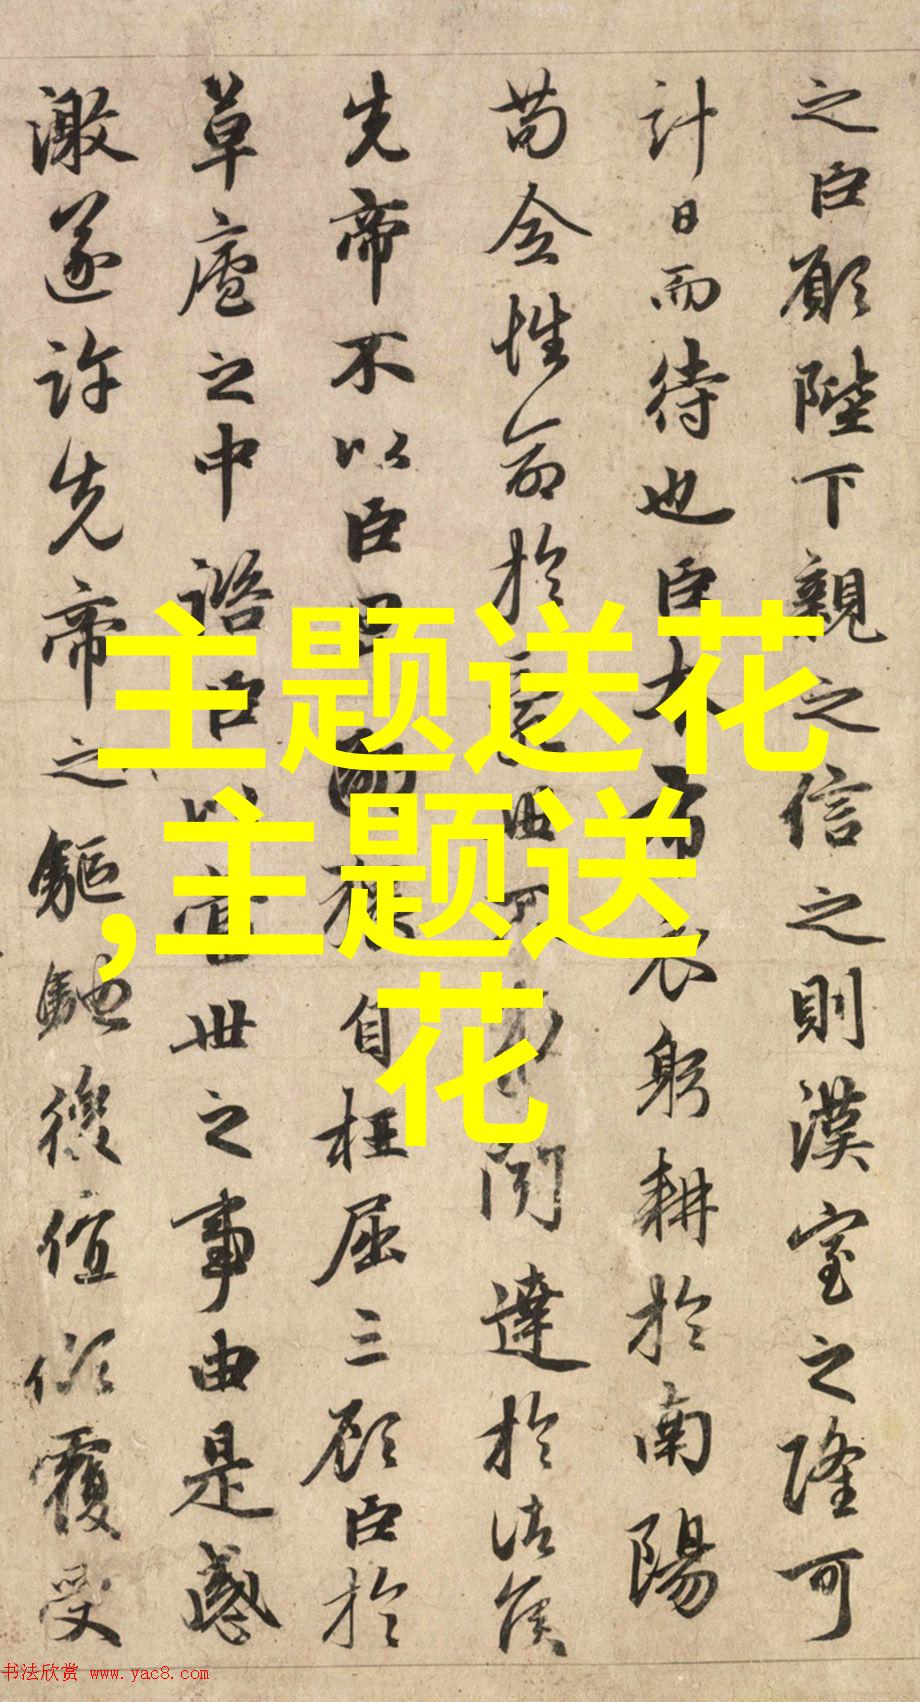 之臣願陛下親之信之則漢室之隆可
計日而待也臣本布衣躬耕於南陽
苟全性命於亂世不求聞達於諸侯
先帝不以臣卑鄙猥自枉屈三顧臣於
草廬之中諮臣以當世之事由是感
激遂許先帝之驅馳後值傾覆受
主题送花
,主题送
花
书法欣赏 www.yac8.com